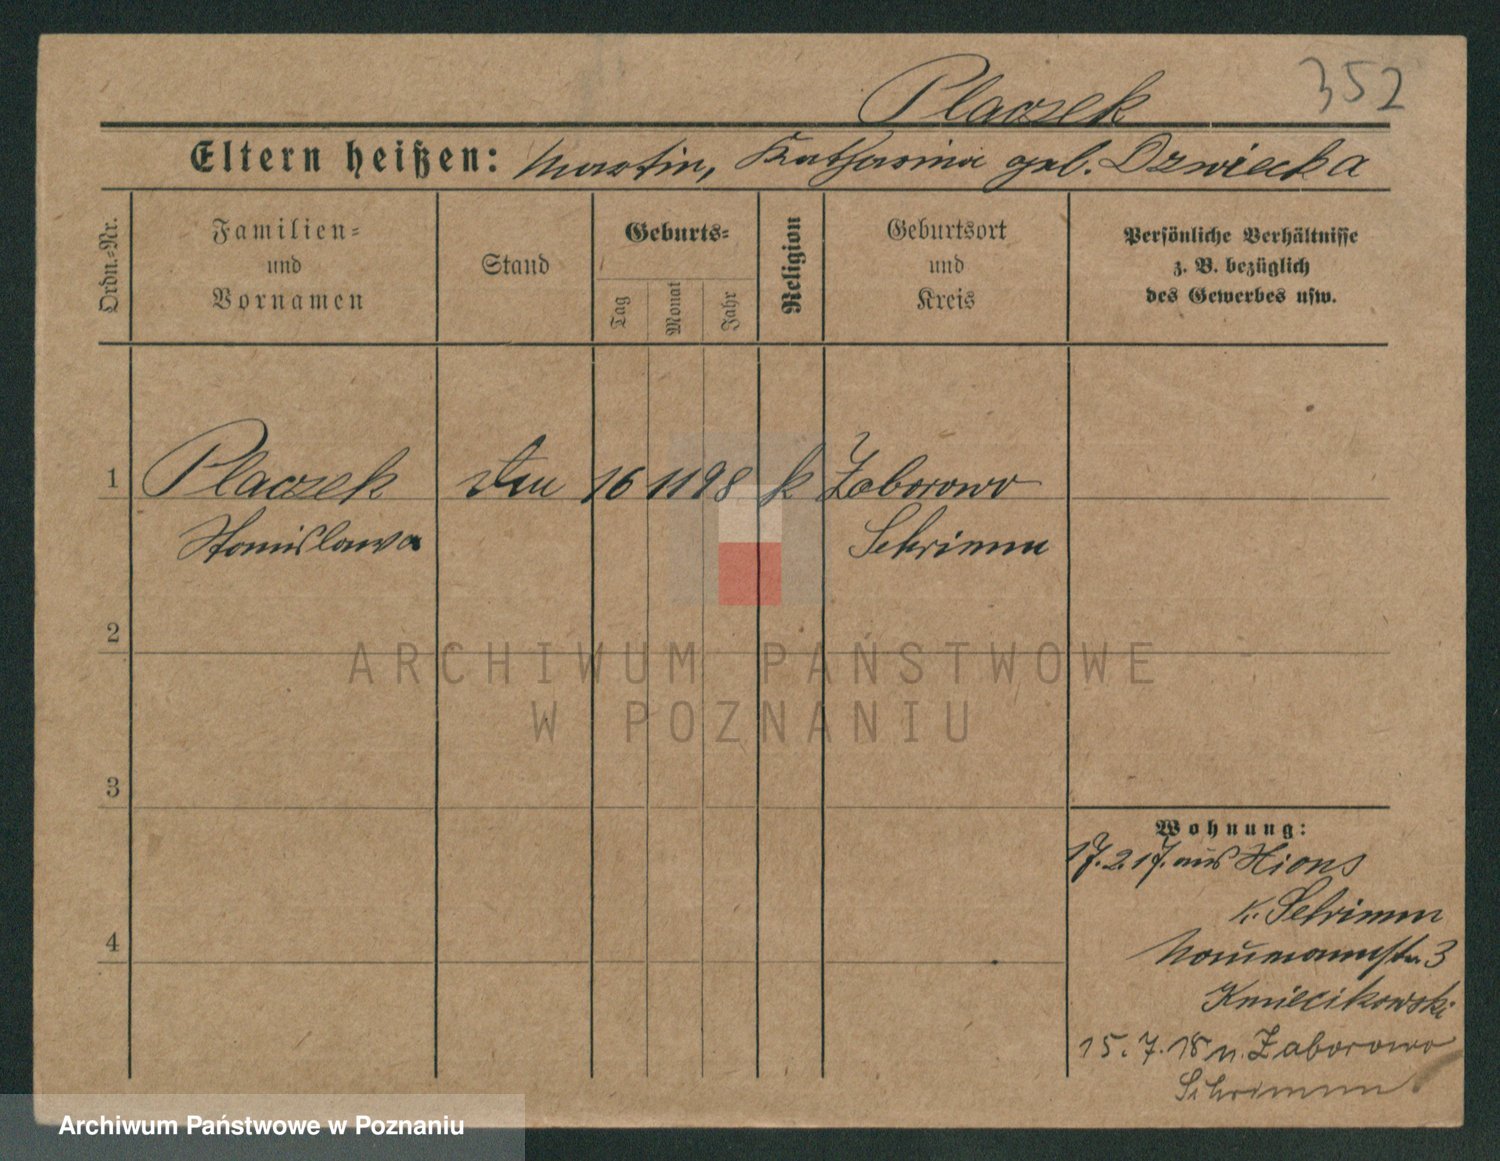 352
Placzek
Eltern heißen: Martin, Katharina geb. Dzwiecka
Ordn.-Nr.
Familien-
und
Vornamen
Stand
Geburts-
Tag
Monat
Jahr
Religion
Geburtsort
und
Kreis
Persönliche Verhältnisse
z. B. bezüglich
des Gewerbes usw.
1 Placzek 16 11 98 k Zaborowo
Stanislawa Schrimm
2
3
4
Wohnung:
17.2.17. aus Xions
K. Schrimm
Naumannstr. 3
Kmiecikowski
15.7.18 n. Zaborowo
Schrimm
ARCHIWUM PAŃSTWOWE
W POZNANIU
Archiwum Państwowe w Poznaniu